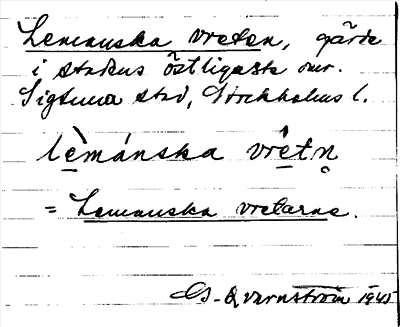 Lemanska vreten, gärde
i stadens östligaste omr.
Sigtuna stad, Stockholms l.
lèmánska vrètn̥
= Lemanska vretarne.
G. Qvarnström 1945